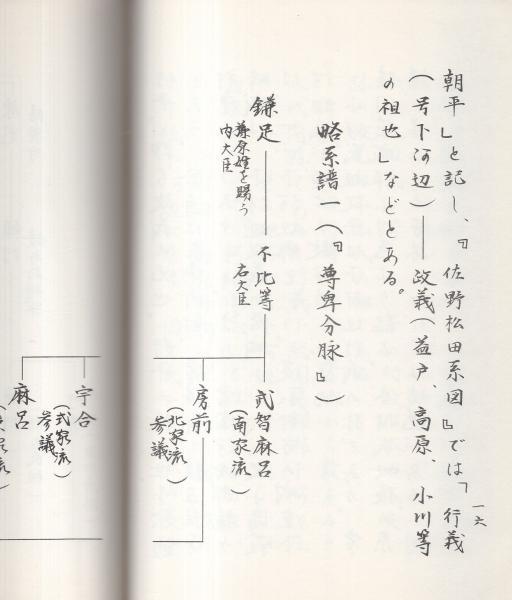 一六
朝平」と記し、『佐野松田系図』では「行義
(号下河辺)――政義(益戸、高原、小川等
の祖也」などとある。
略系譜一(『尊卑分脉』)
鎌足
藤原姓を賜う
内大臣
不比等
右大臣
武智麻呂
(南家流)
房前
(北家流)
参議
宇合
(式家流)
参議
麻呂